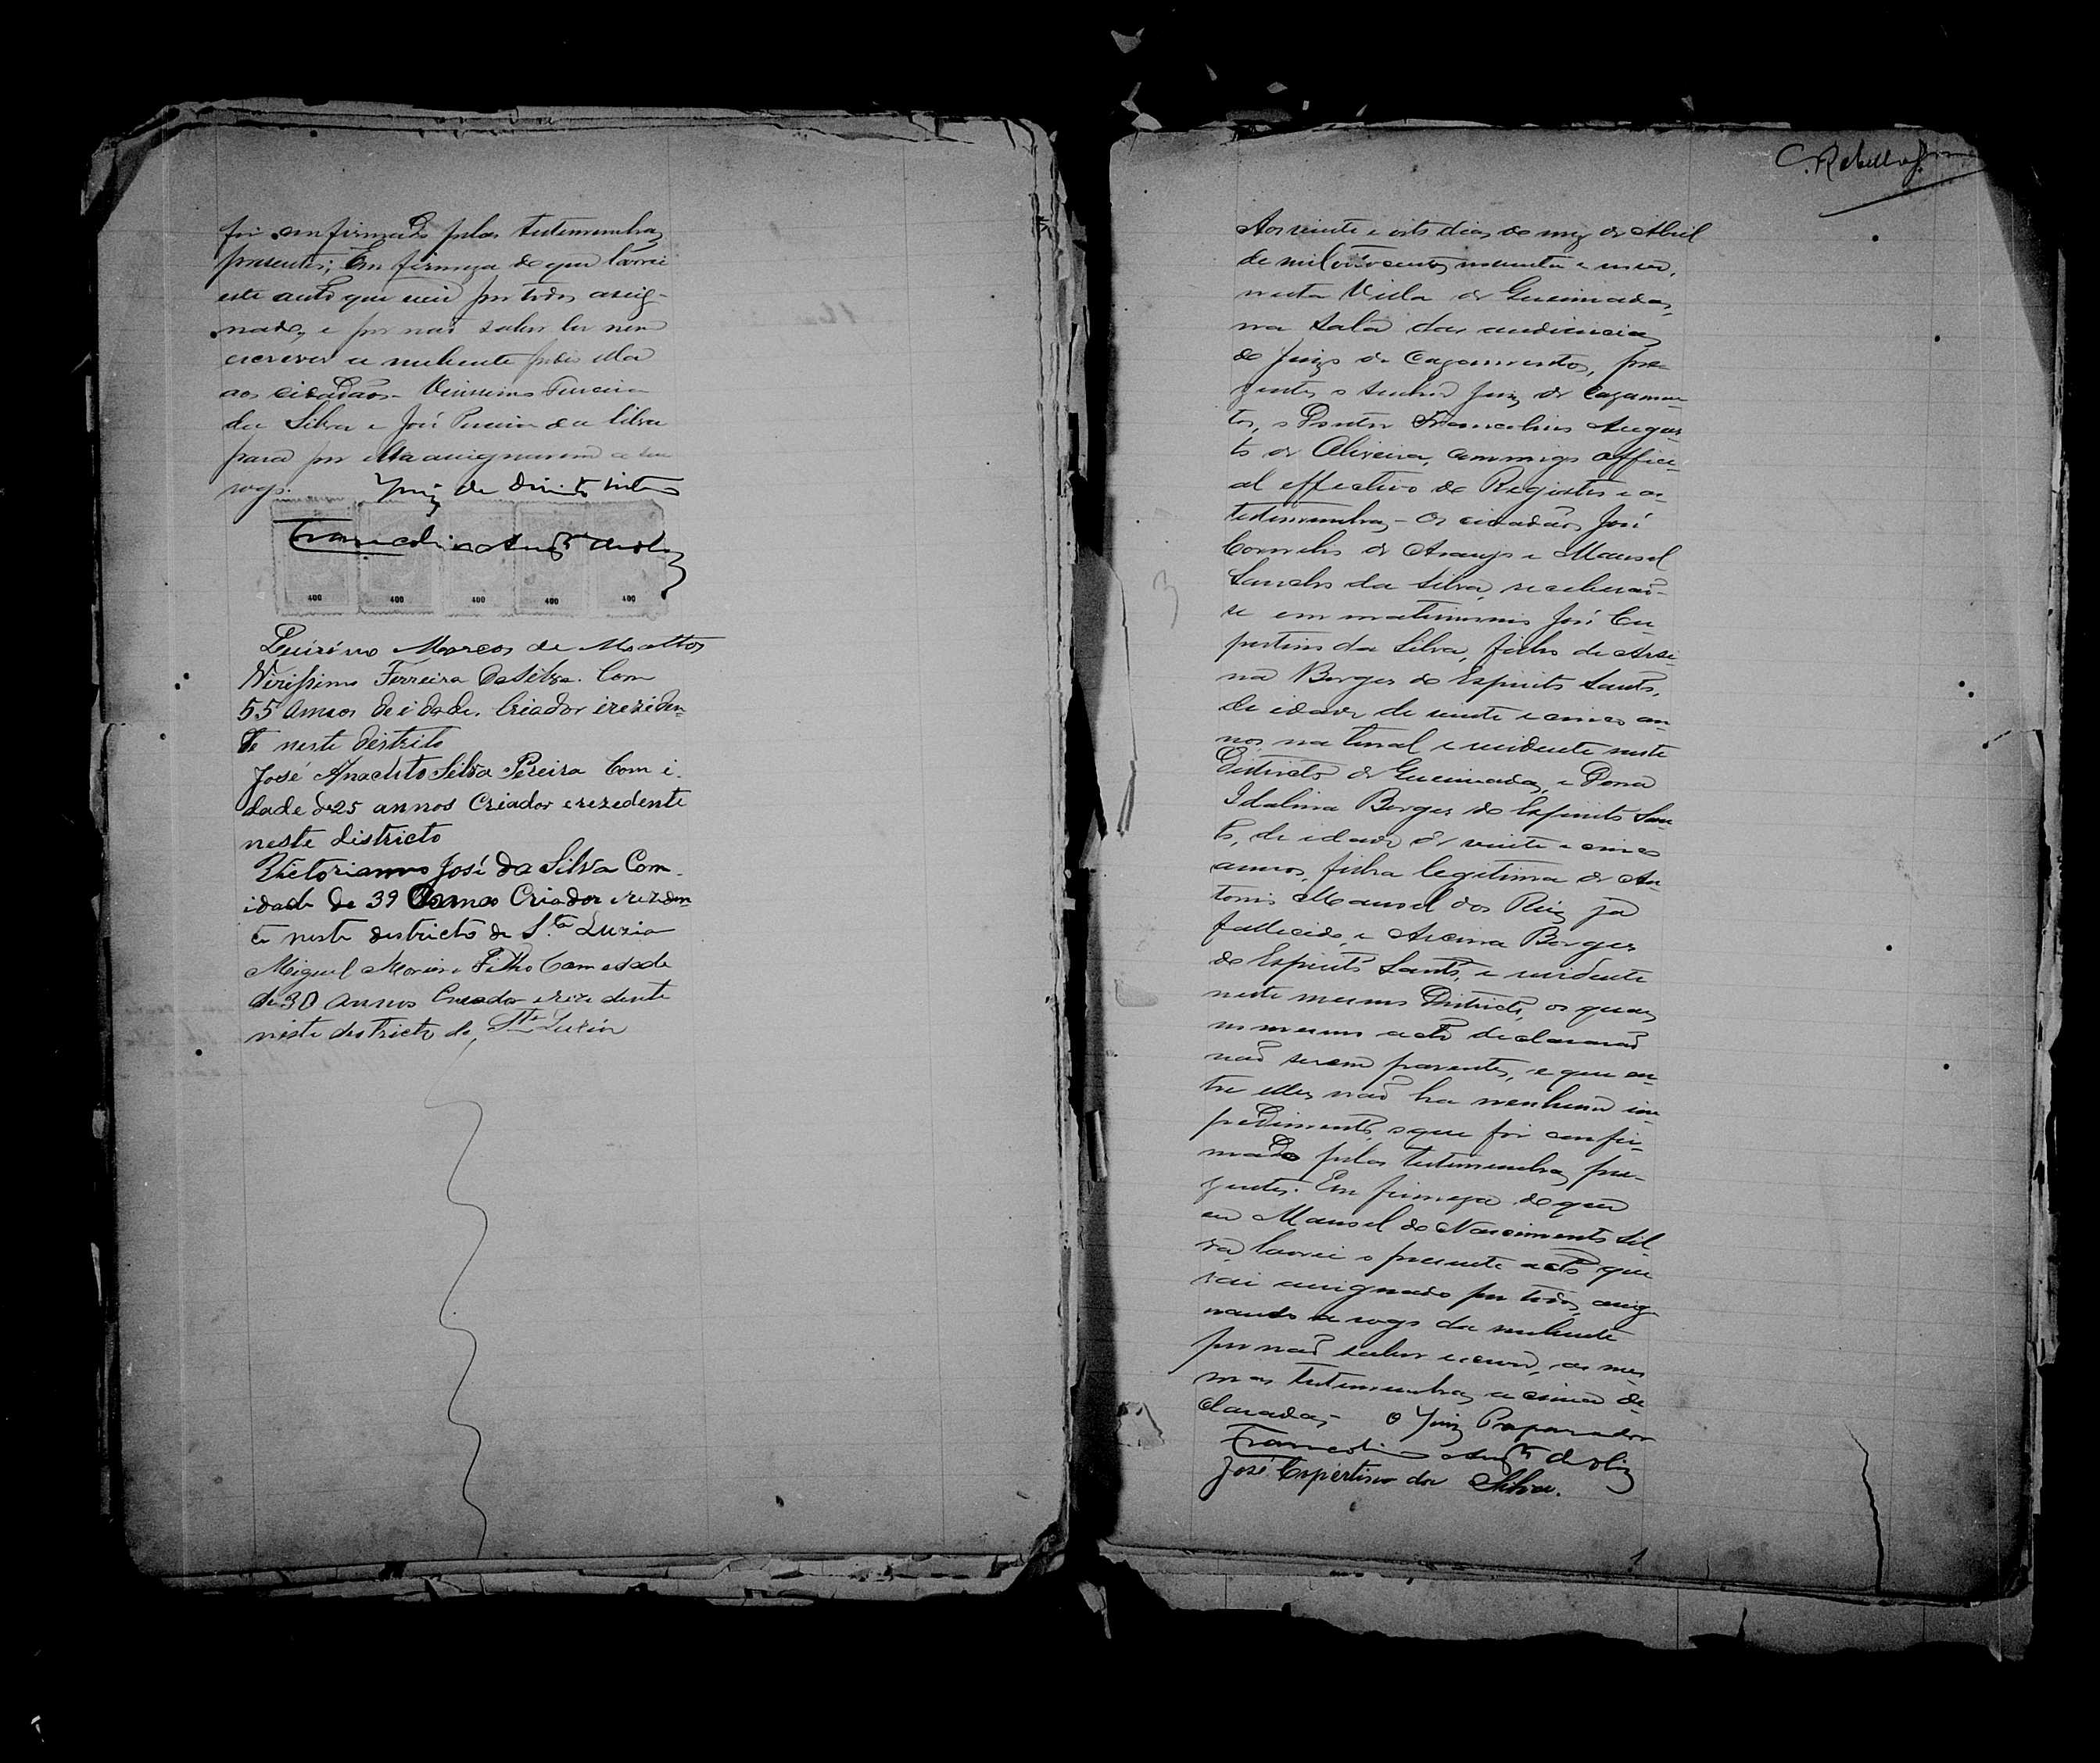 foi confirmado pelas testemunhas
presentes; Em firmeza do que lavrei
este auto que vai por todos assig-
nado, e por não saber ler nem
escrever a nubente pedio ella
aos cidadãos - Virissimo Ferreira
da Silva e José Pereira da Silva
para por ella assignarem a seu
rogo. Juiz de Direito
Francolino Augto de Olivª
400 400 400 400 400
Quirino Marcos de Mattos
Virissimo Ferreira da Silva. Com
55 annos de idade, Criador e reziden-
te neste distrito
José Anacleto Silva Pereira Com i-
dade de 25 annos Criador e rezedente
neste districto
Victorianno José da Silva Com
idade de 39 Annos Criador e reziden-
te neste destricto de S.ta Luzia
Miguel Filho Com idade
de 30 annos Creador e rezedente
neste destricto de Sta Luzia
C. Rebello
Aos vinte e oito dias do mez de Abril
de mil oitocentos noventa e nove,
nesta Villa de Queimadas,
na sala das audiencias
do Juizo de Cazamentos, pre-
zentes o senhor Juiz de Cazamen-
tos, o Doutor Francolino Augus-
to de Oliveira, commigo offici-
al effectivo do Registro e as
testemunhas - Os cidadãos José
Cornelio de Araujo e Manoel
Sancho da Silva, receberão-
se em matrimonio José Cu-
pertino da Silva, filho de Arse-
na Borges do Espirito Santo,
de idade de vinte e cinco an-
nos, natural e residente neste
Districto de Queimadas, e Dona
Idalina Borges do Espirito San-
to, de idade de vinte e cinco
annos, filha legitima de An-
tonio Manoel dos Reis já
fallecido, e Arcena Borges
do Espirito Santo, e residente
neste mesmo Districto, os quaes
no mesmo acto declararão
não serem parentes, e que en-
tre elles não ha nenhum im-
pedimento, o que foi confir-
mado pelas testemunhas pre-
zentes. Em firmeza do que
eu Manoel do Nascimento Sil-
va lavrei o presente acto que
vai assignado por todos, assig-
nando a rogo da nubente
por não saber escrever, as mes-
mas testemunhas acima de-
claradas - O Juiz Preparador
Francolino Augto de Olivª
José Cupertino da Silva.